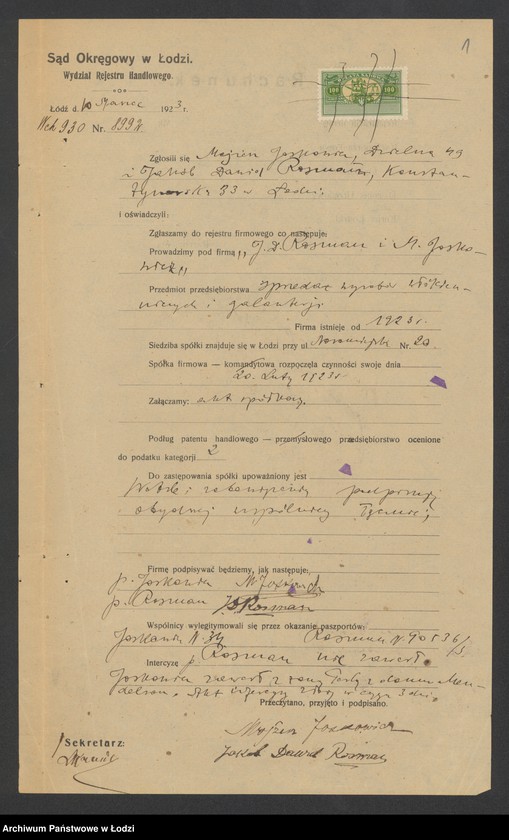 1
Sąd Okręgowy w Łodzi.
Wydział Rejestru Handlowego.
Łódź d. 10 Marca 1923 r.
Nr. 8992
100 100
Zgłosili się Majżen Joskowicz, Dzielna 49
i Jakób Dawid Rosman, Konstan-
tynowska 33 w Łodzi
i oświadczyli:
Zgłaszamy do rejestru firmowego co następuje:
Prowadzimy pod firmą „J. D. Rosman i M. Josko-
wicz"
Przedmiot przedsiębiorstwa sprzedaż wyrobów włókien-
niczych i galanterji
Firma istnieje od 1923 r.
Siedziba spółki znajduje się w Łodzi przy ul Nowomiejska Nr. 20
Spółka firmowa — komandytowa rozpoczęła czynności swoje dnia
20 Luty 1923 r
Załączamy: akt spółkowy
Podług patentu handlowego — przemysłowego przedsiębiorstwo ocenione
do podatku kategorji 2
Do zastępowania spółki upoważniony jest
Weksle i zobowiązania podpisują
obydwaj wspólnicy łącznie
Firmę podpisywać będziemy, jak następuje:
p. Joskowicz M Joskowicz
p. Rosman JD Rosman
Wspólnicy wylegitymowali się przez okazanie paszportów:
Joskowicz N. Rosman N
Intercyzę p. Rosman nie zawarł
Joskowicz zawarł z żoną z domu Men-
delson. Akt intercyzy złoży w ciągu 3 dni.
Przeczytano, przyjęto i podpisano.
Majżen Joskowicz
Jakób Dawid Rosman
Sekretarz:
Archiwum Państwowe w Łodzi